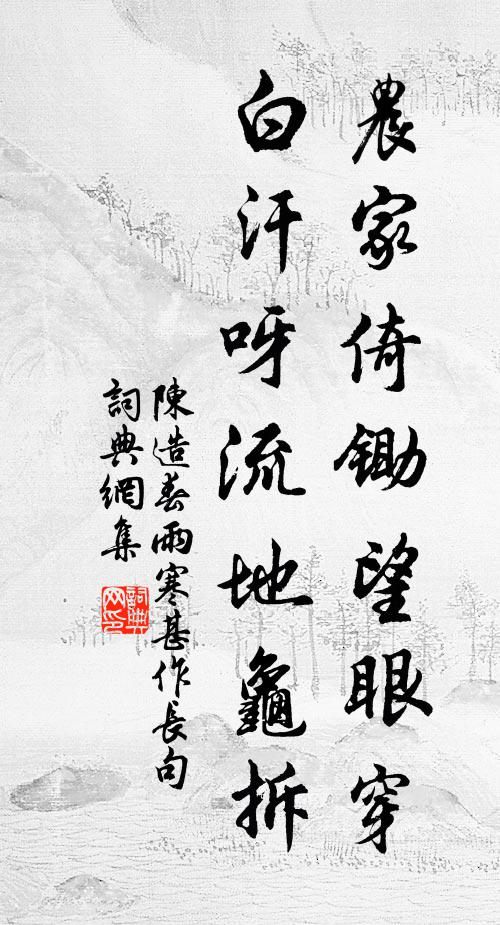 農家倚鋤望眼穿
白汗呀流地龜拆
陳造春雨寒甚作長句
詞典網集
詞典
网印